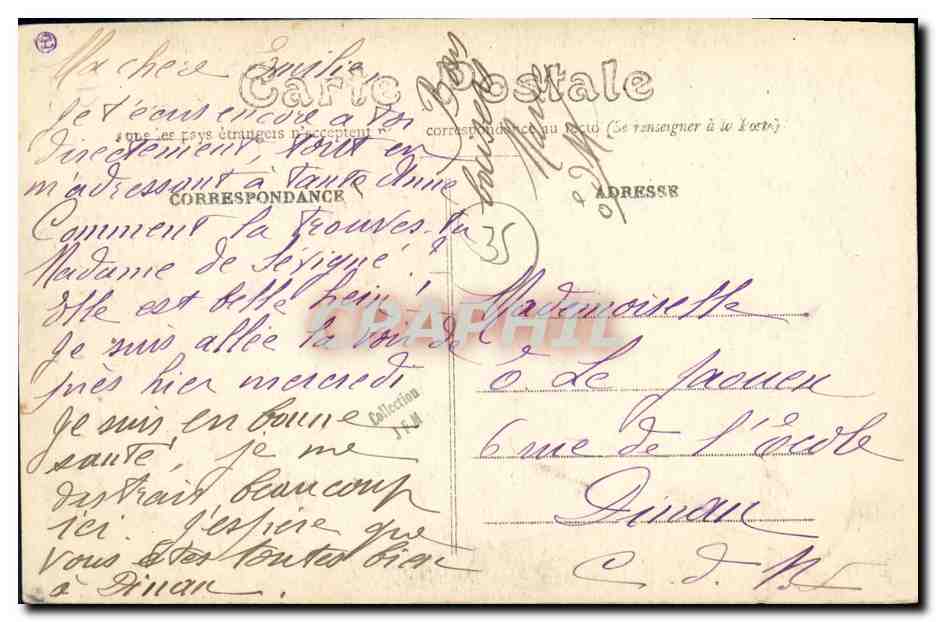 Carte Postale
tous les pays étrangers n'acceptent correspondance au recto (Se renseigner à la Poste)
CORRESPONDANCE
ADRESSE
Ma chère Émilie,
Je t'écris encore à toi
directement, tout en
m'adressant à Tante Anne
Comment la trouves-tu
Madame de Sévigné ?
Elle est belle hein !
Je suis allée la voir de
près hier mercredi
Je suis en bonne
santé, je me
distrais beaucoup
ici. J'espère que
vous êtes toutes bien
à Dinan.
Bons
baisers
35
Mademoiselle
É. Le Jaouen
6 rue de l'École
Dinan
C. d. N
Collection
J F M
CPAPHIL